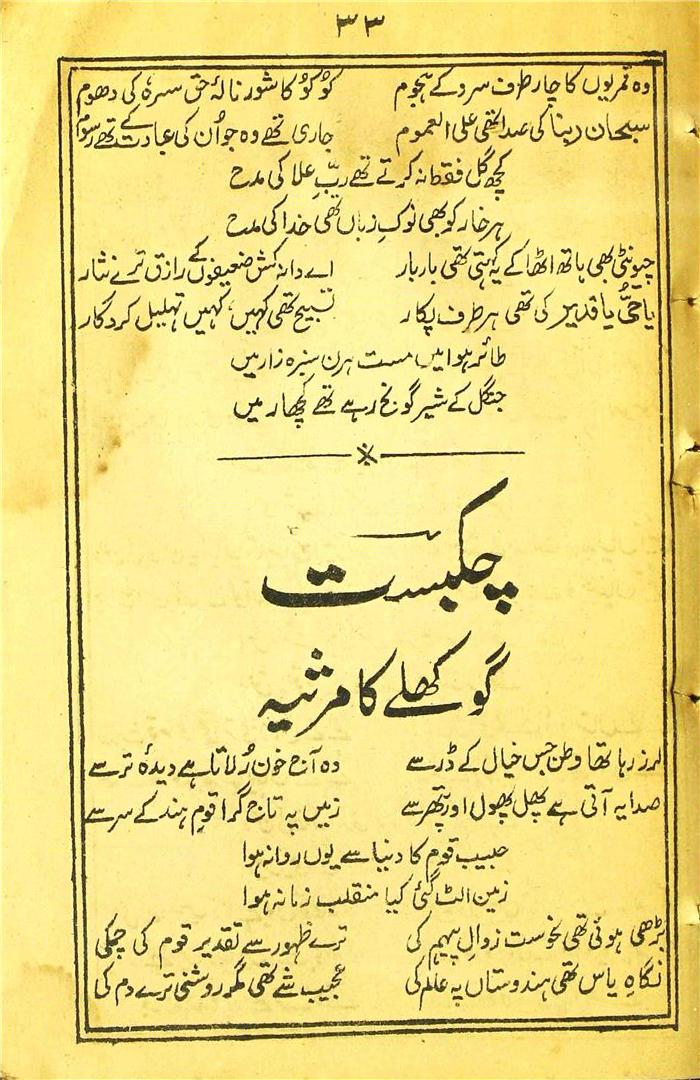 ۳۳
وہ قمریوں کا چار طرف سرو کے ہجوم    کوٗکوٗ کا شور نالۂ حق سرہٗ کی دھوم
سبحان ربنا کی صدا تھی علی العموم    جاری تھے وہ جو اُن کی عبادت کے تھے رسوم
کچھ گل فقط نہ کرتے تھے ربِّ علا کی مدح
ہر خار کو بھی نوکِ زباں تھی خدا کی مدح
چیونٹی بھی ہاتھ اٹھا کے یہ کہتی تھی بار بار    اے دانہ کش ضعیفوں کے رازق ترے نثار
یا حیُّ یا قدیر کی تھی ہر طرف پکار    تسبیح تھی کہیں، کہیں تہلیل کردگار
طائر ہوا میں مست ہرن سبزہ زار میں
جنگل کے شیر گونج رہے تھے کچھار میں
چکبست
گوکھلے کا مرثیہ
لرز رہا تھا وطن جس خیال کے ڈر سے    وہ آج خون رُلاتا ہے دیدۂ تر سے
صدا یہ آتی ہے پھل پھول اور پتھر سے    زمیں پہ تاج گرا قومِ ہند کے سر سے
حبیب قوم کا دنیا سے یوں روانہ ہوا
زمین الٹ گئی کیا منقلب زمانہ ہوا
بڑھی ہوئی تھی نحوست زوالِ پیہم کی    ترے ظہور سے تقدیر قوم کی چمکی
نگاہِ یاس تھی ہندوستاں پہ عالم کی    عجیب شے تھی مگر روشنی ترے دم کی